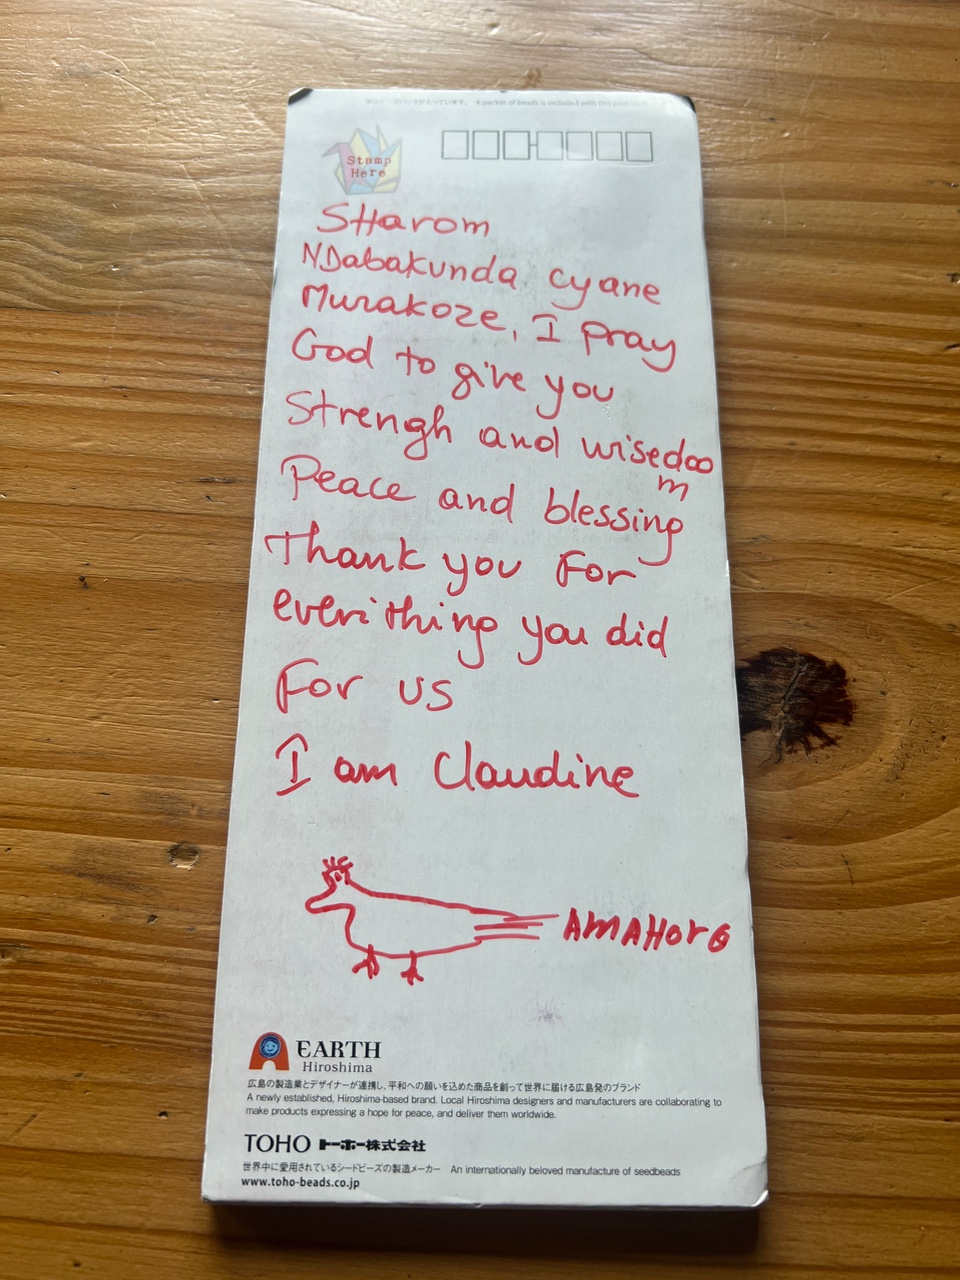 A packet of beads is included with this
Stamp
Here
SHarom
NDabakunda cyane
Murakoze, I pray
God to give you
Strengh and wisedoo
m
Peace and blessing
Thank you For
everithing you did
For us
I am Claudine
AMAHoro
EARTH
Hiroshima
広島の製造業とデザイナーが連携し、平和への願いを込めた商品を創って世界に届ける広島発のブランド
A newly established, Hiroshima-based brand. Local Hiroshima designers and manufacturers are collaborating to
make products expressing a hope for peace, and deliver them worldwide.
TOHO トーホー株式会社
世界中に愛用されているシードビーズの製造メーカー An internationally beloved manufacture of seedbeads
www.toho-beads.co.jp